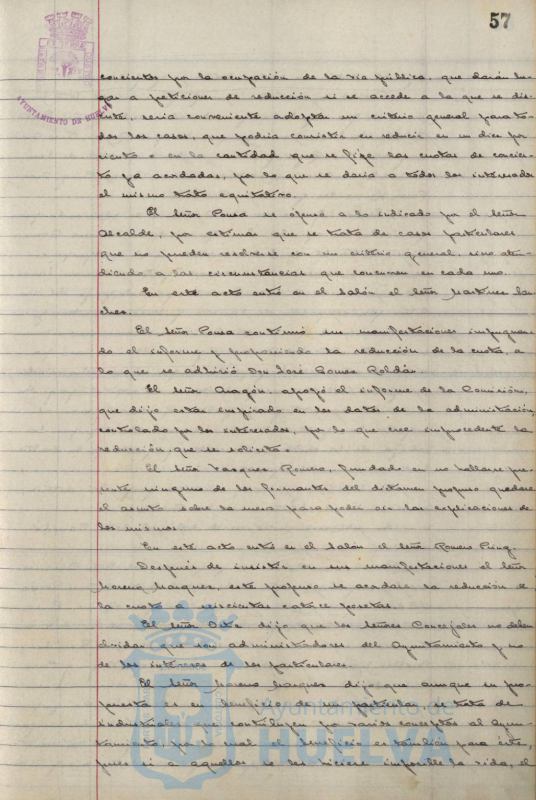 57
AYUNTAMIENTO DE HUELVA
conciertos por la ocupación de la vía pública, que darán lu-
gar a peticiones de reducción si se accede a la que se dis-
cute, sería conveniente adoptar un criterio general para to-
dos los casos, que podría consistir en reducir en un diez por
ciento o en la cantidad que se fije las cuotas de concier-
to ya acordadas, por lo que se daría a todos los interesados
el mismo trato equitativo.
El Señor Ponsa se opuso a lo indicado por el Señor
Alcalde, por estimar que se trata de casos particulares
que no pueden resolverse con un criterio general, sino aten-
diendo a las circunstancias que concurren en cada uno.
En este acto entró en el Salón el Señor Martínez Sán-
chez.
El Señor Ponsa continuó sus manifestaciones impugnan-
do el informe y proponiendo la reducción de la cuota, a
lo que se adhirió Don José Gomez Roldán.
El Señor Aragón, apoyó el informe de la Comisión,
que dijo estar inspirado en los datos de la administración,
controlado por los interesados, por lo que cree improcedente la
reducción que se solicita.
El Señor Vazquez Romero, fundado en no hallarse pre-
sente ninguno de los firmantes del dictamen propuso quedase
el asunto sobre la mesa para poder oir las explicaciones de
los mismos.
En este acto entró en el Salón el Señor Romero
Después de insistir en sus manifestaciones el Señor
Moreno Marquez, este propuso se acordara la reducción de
la cuota a seiscientas catorce pesetas.
El Señor Orta dijo que los Señores Concejales no deben
olvidar que son administradores del Ayuntamiento y no
de los intereses de los particulares.
El Señor Moreno Marquez dijo que aunque su pro-
puesta es en beneficio de un particular, se trata de
industriales que contribuyen por varios conceptos al Ayun-
tamiento, por lo cual el beneficio es también para éste,
pues si a aquellos se les hiciere imposible la vida, el
Ayuntamiento de
HUELVA